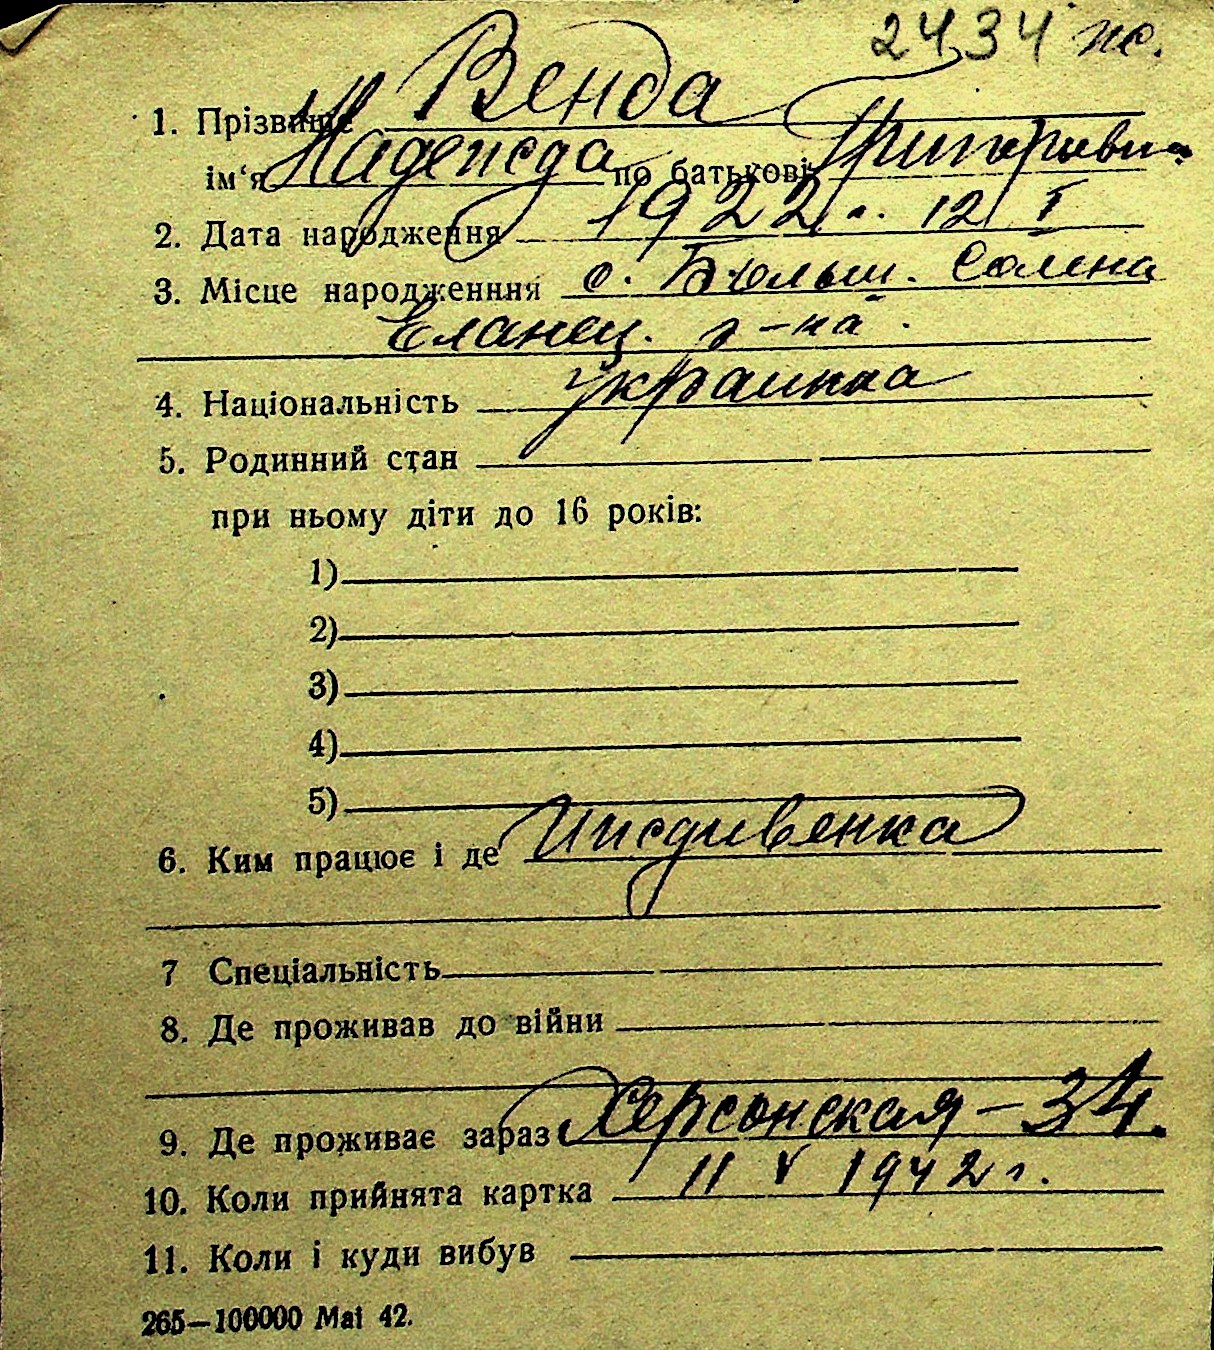 2434 пс.
1. Прізвище Венда
ім'я Надежда по батькові Григоровна
2. Дата народження 1922 г. 12/I
3. Місце народженння с. Больш. Солена
Еланец. р-на
4. Національність украинка
5. Родинний стан
при ньому діти до 16 років:
1)
2)
3)
4)
5)
6. Ким працює і де Иждивенка
7 Спеціальність
8. Де проживав до війни
9. Де проживає зараз Херсонская – 34.
10. Коли прийнята картка 11 V 1942 г.
11. Коли і куди вибув
265—100000 Mai 42.